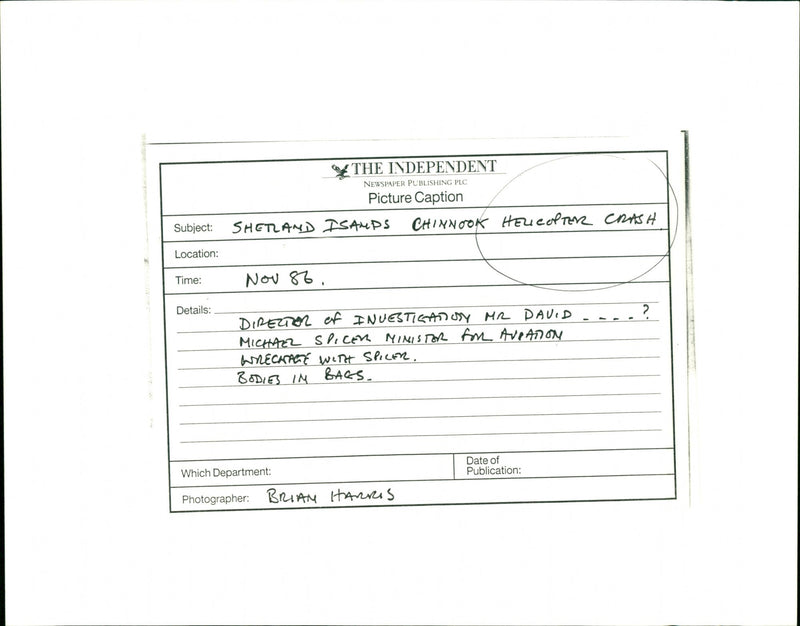 THE INDEPENDENT
NEWSPAPER PUBLISHING PLC
Picture Caption
Subject: SHETLAND ISANDS CHINNOOK HELICOPTER CRASH.
Location:
Time: NOV 86.
Details:
DIRECTOR OF INVESTIGATION MR DAVID ----?
MICHAEL SPICER MINISTER FOR AVIATION
WRECKAGE WITH SPICER.
BODIES IN BAGS.
Which Department:
Date of
Publication:
Photographer: BRIAN HARRIS